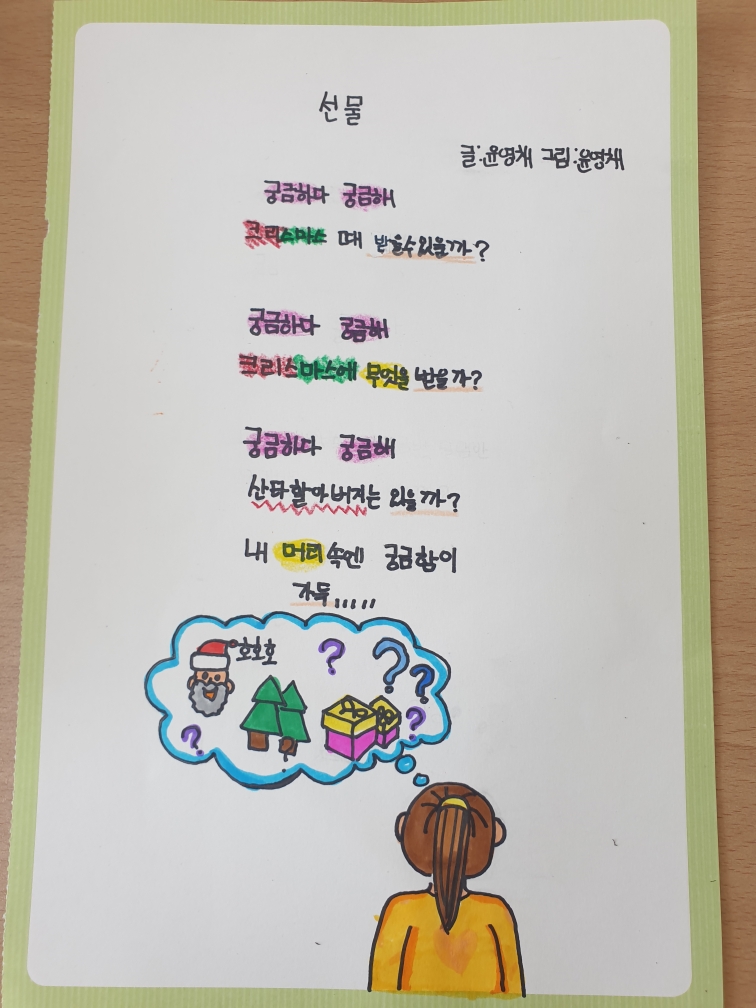 선물
글:윤영채 그림:윤영채
궁금하다 궁금해
크리스마스 때 받을수있을까?
궁금하다 궁금해
크리스마스에 무엇을 받을까?
궁금하다 궁금해
산타할아버지는 있을까?
내 머리속엔 궁금함이
가득.....
호호호
? ? ? ? ?